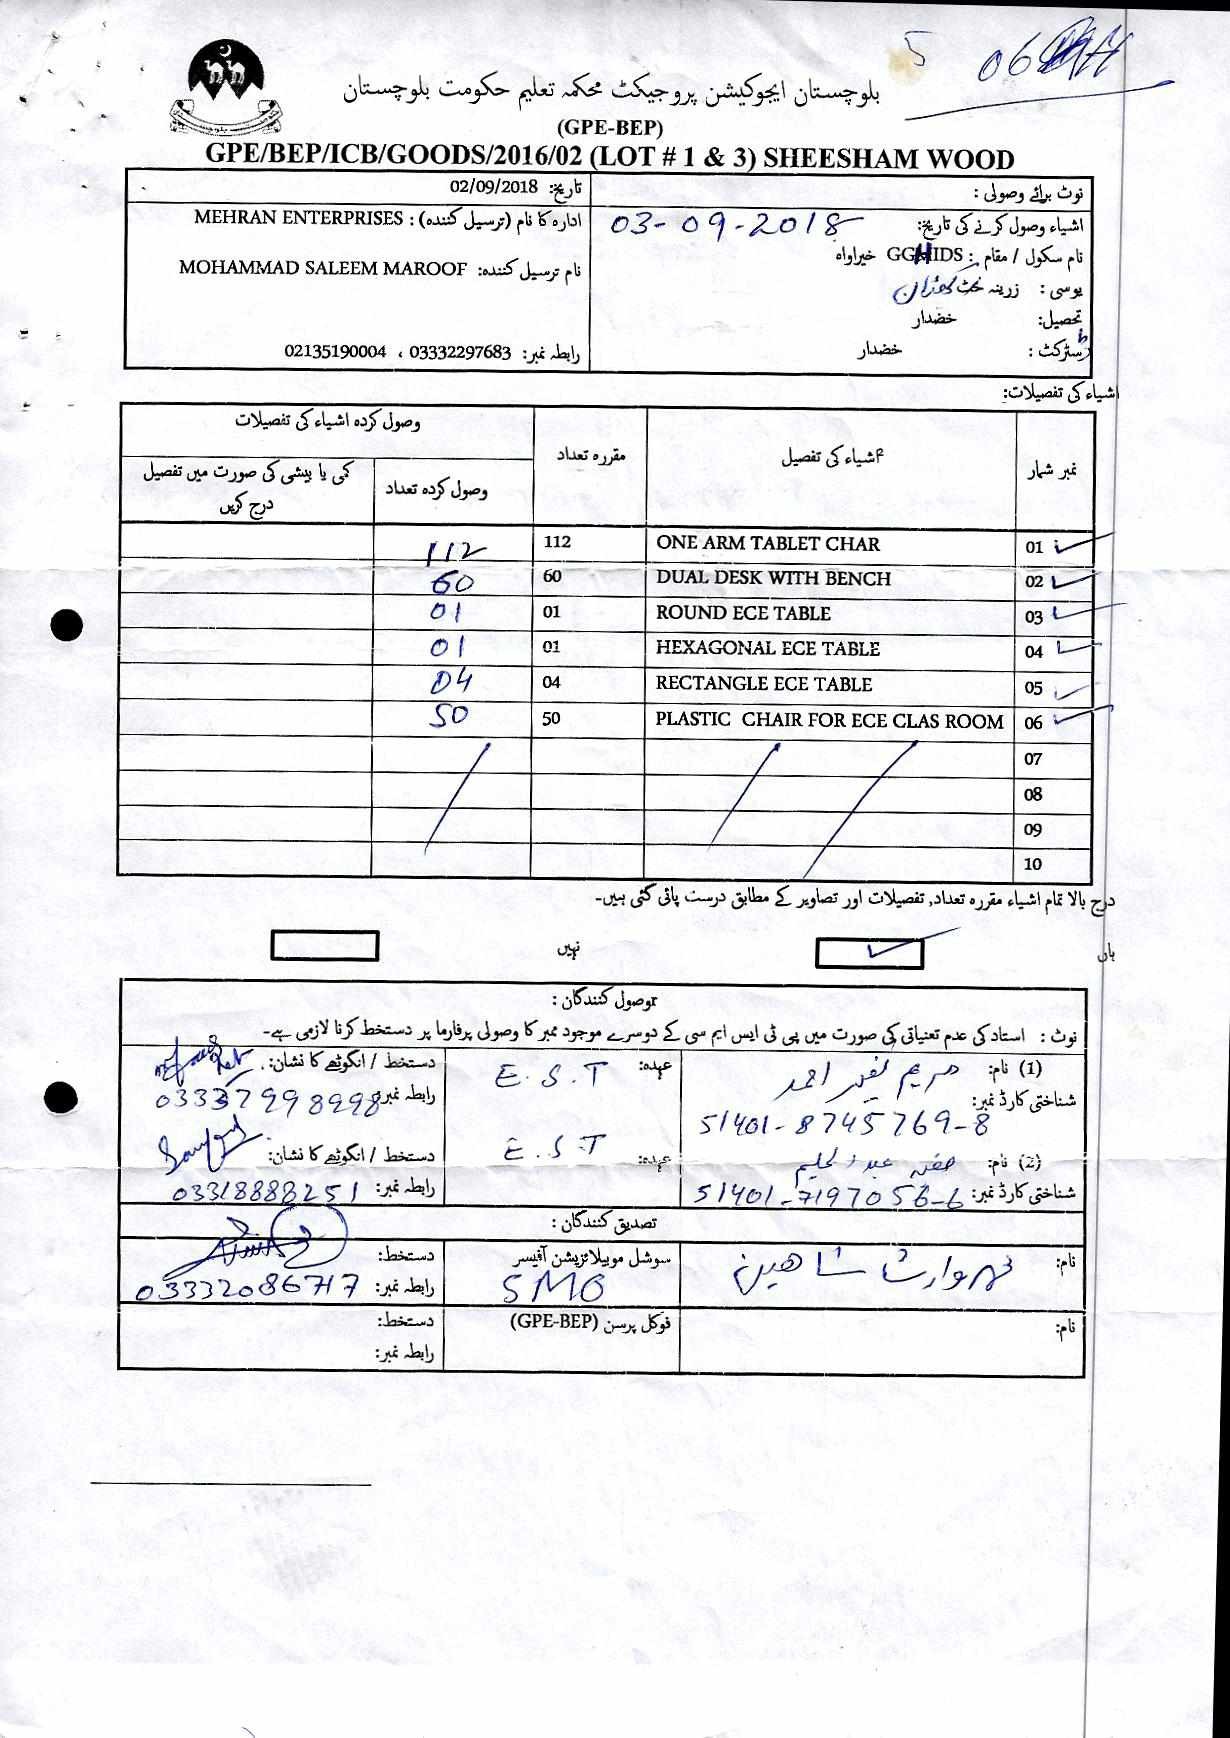 5 06
بلوچستان ایجوکیشن پروجیکٹ محکمہ تعلیم حکومت بلوچستان
(GPE-BEP)
GPE/BEP/ICB/GOODS/2016/02 (LOT # 1 & 3) SHEESHAM WOOD
نوٹ برائے وصولی :
تاریخ: 02/09/2018
اشیاء وصول کرنے کی تاریخ: 03-09-2018
ادارہ کا نام (ترسیل کنندہ) : MEHRAN ENTERPRISES
نام سکول / مقام : GGHIDS خیراواہ
نام ترسیل کنندہ: MOHAMMAD SALEEM MAROOF
یوسی : زرینہ کھٹ
تحصیل: خضدار
ڈسٹرکٹ : خضدار
رابطہ نمبر: 03332297683 ، 02135190004
اشیاء کی تفصیلات:
نمبر شمار اشیاء کی تفصیل مقررہ تعداد وصول کردہ اشیاء کی تفصیلات
وصول کردہ تعداد کمی یا بیشی کی صورت میں تفصیل درج کریں
01 ONE ARM TABLET CHAR 112 112
02 DUAL DESK WITH BENCH 60 60
03 ROUND ECE TABLE 01 01
04 HEXAGONAL ECE TABLE 01 01
05 RECTANGLE ECE TABLE 04 04
06 PLASTIC CHAIR FOR ECE CLAS ROOM 50 50
07
08
09
10
درج بالا تمام اشیاء مقررہ تعداد, تفصیلات اور تصاویر کے مطابق درست پائی گئی ہیں۔
ہاں ✓ نہیں
وصول کنندگان :
نوٹ : استاد کی عدم تعنیاتی کی صورت میں پی ٹی ایس ایم سی کے دوسرے موجود ممبر کا وصولی پرفارما پر دستخط کرنا لازمی ہے۔
(1) نام: مریم نصیر احمد عہدہ: E.S.T دستخط / انگوٹھے کا نشان:
شناختی کارڈ نمبر: 51401-8745769-8 رابطہ نمبر: 03337998998
(2) نام: صفیہ عبدالحلیم عہدہ: E.S.T دستخط / انگوٹھے کا نشان:
شناختی کارڈ نمبر: 51401-7197056-6 رابطہ نمبر: 03318888251
تصدیق کنندگان :
نام: مہروارث شاھین سوشل موبیلائزیشن آفیسر SMO دستخط:
رابطہ نمبر: 03332086717
نام: فوکل پرسن (GPE-BEP) دستخط:
رابطہ نمبر: